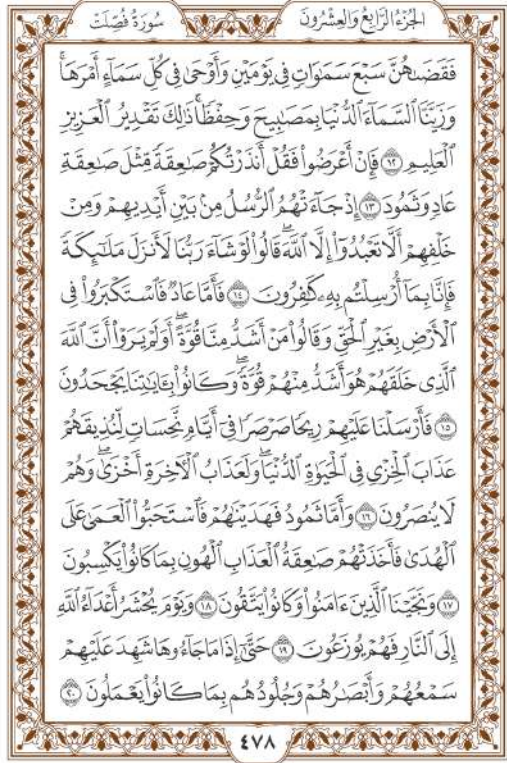 الجُزْءُ الرَّابِعُ وَالعِشْرُونَ
سُورَةُ فُصِّلَتْ
فَقَضَىٰهُنَّ سَبْعَ سَمَٰوَاتٖ فِي يَوْمَيْنِ وَأَوْحَىٰ فِي كُلِّ سَمَآءٍ أَمْرَهَاۚ
وَزَيَّنَّا ٱلسَّمَآءَ ٱلدُّنْيَا بِمَصَٰبِيحَ وَحِفْظٗاۚ ذَٰلِكَ تَقْدِيرُ ٱلْعَزِيزِ
ٱلْعَلِيمِ ١٢ فَإِنْ أَعْرَضُواْ فَقُلْ أَنذَرْتُكُمْ صَٰعِقَةٗ مِّثْلَ صَٰعِقَةِ
عَادٖ وَثَمُودَ ١٣ إِذْ جَآءَتْهُمُ ٱلرُّسُلُ مِنۢ بَيْنِ أَيْدِيهِمْ وَمِنْ
خَلْفِهِمْ أَلَّا تَعْبُدُوٓاْ إِلَّا ٱللَّهَۖ قَالُواْ لَوْ شَآءَ رَبُّنَا لَأَنزَلَ مَلَٰٓئِكَةٗ
فَإِنَّا بِمَآ أُرْسِلْتُم بِهِۦ كَٰفِرُونَ ١٤ فَأَمَّا عَادٞ فَٱسْتَكْبَرُواْ فِي
ٱلْأَرْضِ بِغَيْرِ ٱلْحَقِّ وَقَالُواْ مَنْ أَشَدُّ مِنَّا قُوَّةًۖ أَوَلَمْ يَرَوْاْ أَنَّ ٱللَّهَ
ٱلَّذِي خَلَقَهُمْ هُوَ أَشَدُّ مِنْهُمْ قُوَّةٗۖ وَكَانُواْ بِـَٔايَٰتِنَا يَجْحَدُونَ
١٥ فَأَرْسَلْنَا عَلَيْهِمْ رِيحٗا صَرْصَرٗا فِيٓ أَيَّامٖ نَّحِسَاتٖ لِّنُذِيقَهُمْ
عَذَابَ ٱلْخِزْيِ فِي ٱلْحَيَوٰةِ ٱلدُّنْيَاۖ وَلَعَذَابُ ٱلْأٓخِرَةِ أَخْزَىٰۖ وَهُمْ
لَا يُنصَرُونَ ١٦ وَأَمَّا ثَمُودُ فَهَدَيْنَٰهُمْ فَٱسْتَحَبُّواْ ٱلْعَمَىٰ عَلَى
ٱلْهُدَىٰ فَأَخَذَتْهُمْ صَٰعِقَةُ ٱلْعَذَابِ ٱلْهُونِ بِمَا كَانُواْ يَكْسِبُونَ
١٧ وَنَجَّيْنَا ٱلَّذِينَ ءَامَنُواْ وَكَانُواْ يَتَّقُونَ ١٨ وَيَوْمَ يُحْشَرُ أَعْدَآءُ ٱللَّهِ
إِلَى ٱلنَّارِ فَهُمْ يُوزَعُونَ ١٩ حَتَّىٰٓ إِذَا مَا جَآءُوهَا شَهِدَ عَلَيْهِمْ
سَمْعُهُمْ وَأَبْصَٰرُهُمْ وَجُلُودُهُم بِمَا كَانُواْ يَعْمَلُونَ ٢٠
٤٧٨